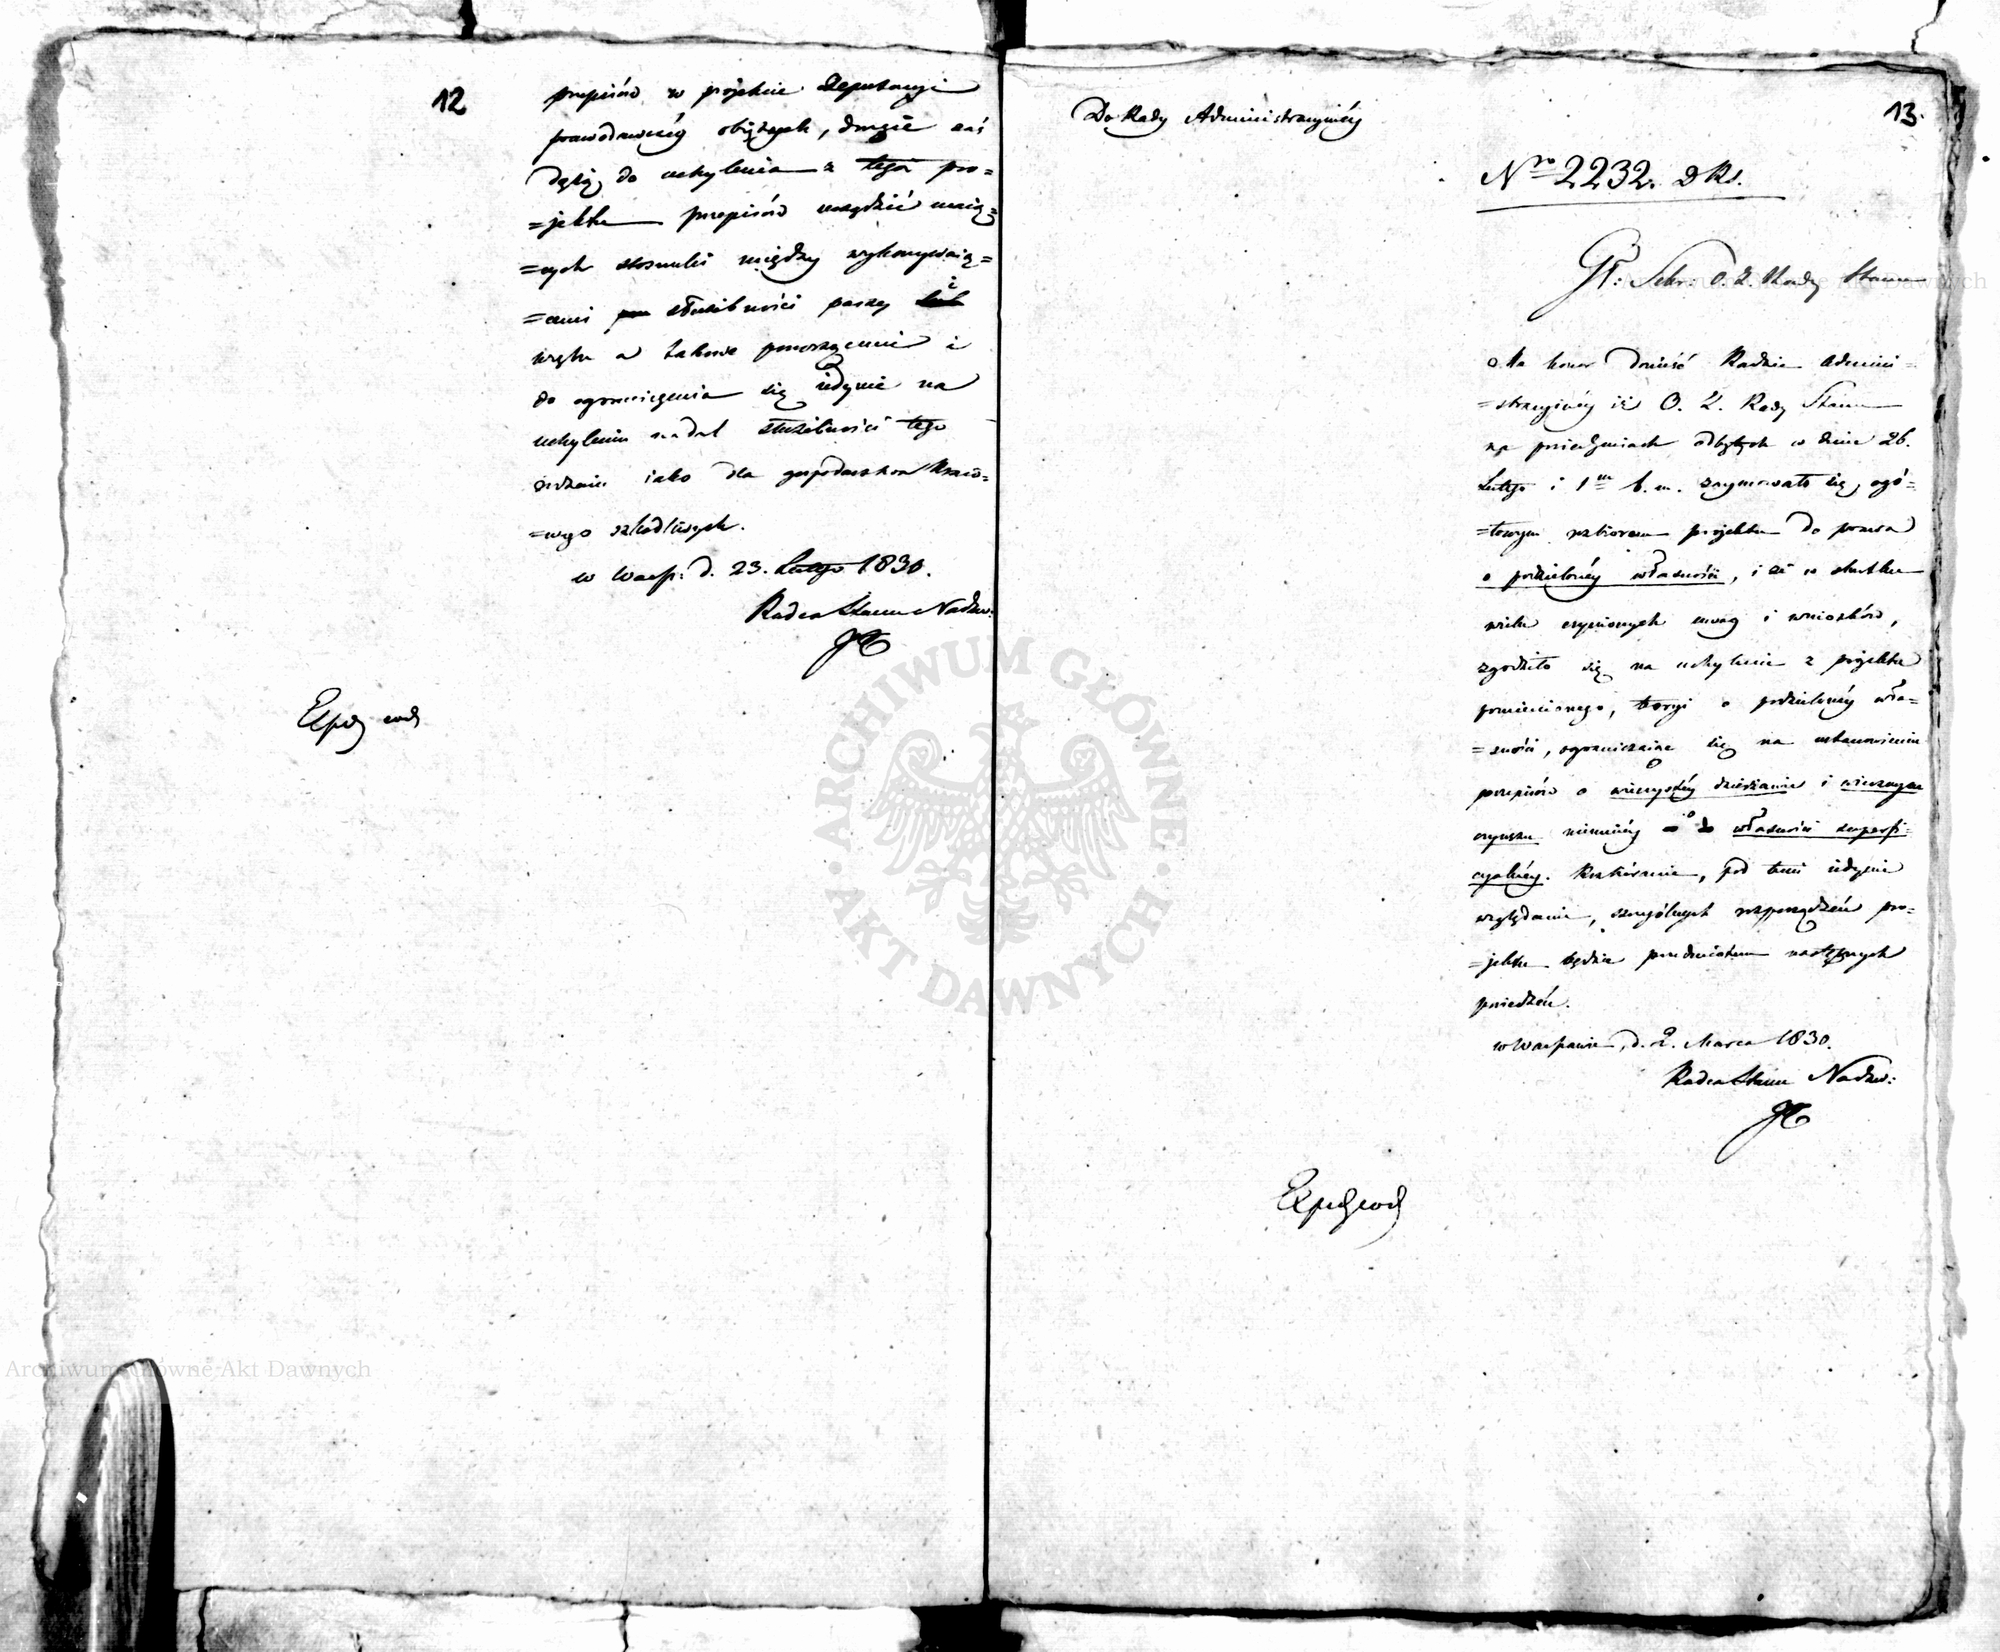 12
przepisów w projekcie Deputacyi
prawodawczéy objętych, drugie zaś
dążą do uchylenia z tego pro=
=jektu przepisów urządzić maią=
=cych stosunki między wykonywaią=
=cemi służebności paszy i
wrębu a takowe ponoszącemi i
do ograniczenia się iedynie na
uchyleniu nadal służebności tego
rodzaiu iako dla gospodarstwa kraio=
=wego szkodliwych.
w Warsz: d. 23. Lutego 1830.
Radca Stanu Nadzw:
Do Rady Administracyinéy
13.
Nro 2232. DRS.
Gł: Sekr: O. Z. Rady Stanu
Ma honor donieść Radzie Admini=
=stracyinéy iż O. Z. Rady Stanu
na posiedzeniach odbytych w dniu 26.
Lutego i 1m b. m. zaymowało się ogó=
=łowym rozbiorem projektu do prawa
o podzielonéy własności, i że w skutku
wielu czynionych uwag i wniosków,
zgodziło się na uchylenie z projektu
pomienionego, teoryi o podzielonéy wła=
=sności, ograniczaiąc się na ustanowieniu
przepisów o wieczystéy dzierżawie i wiecznym
czynszu niemniéy o własności superfi=
cyalnéy. Roztrząsanie, pod temi iedynie
względami, szczególnych rozporządzeń pro=
=jektu będzie przedmiotem następnych
posiedzeń.
w Warszawie, d. 2. Marca 1830.
Radca Stanu Nadzw:
ARCHIWUM GŁÓWNE
AKT DAWNYCH
Archiwum Główne Akt Dawnych
Archiwum Główne Akt Dawnych